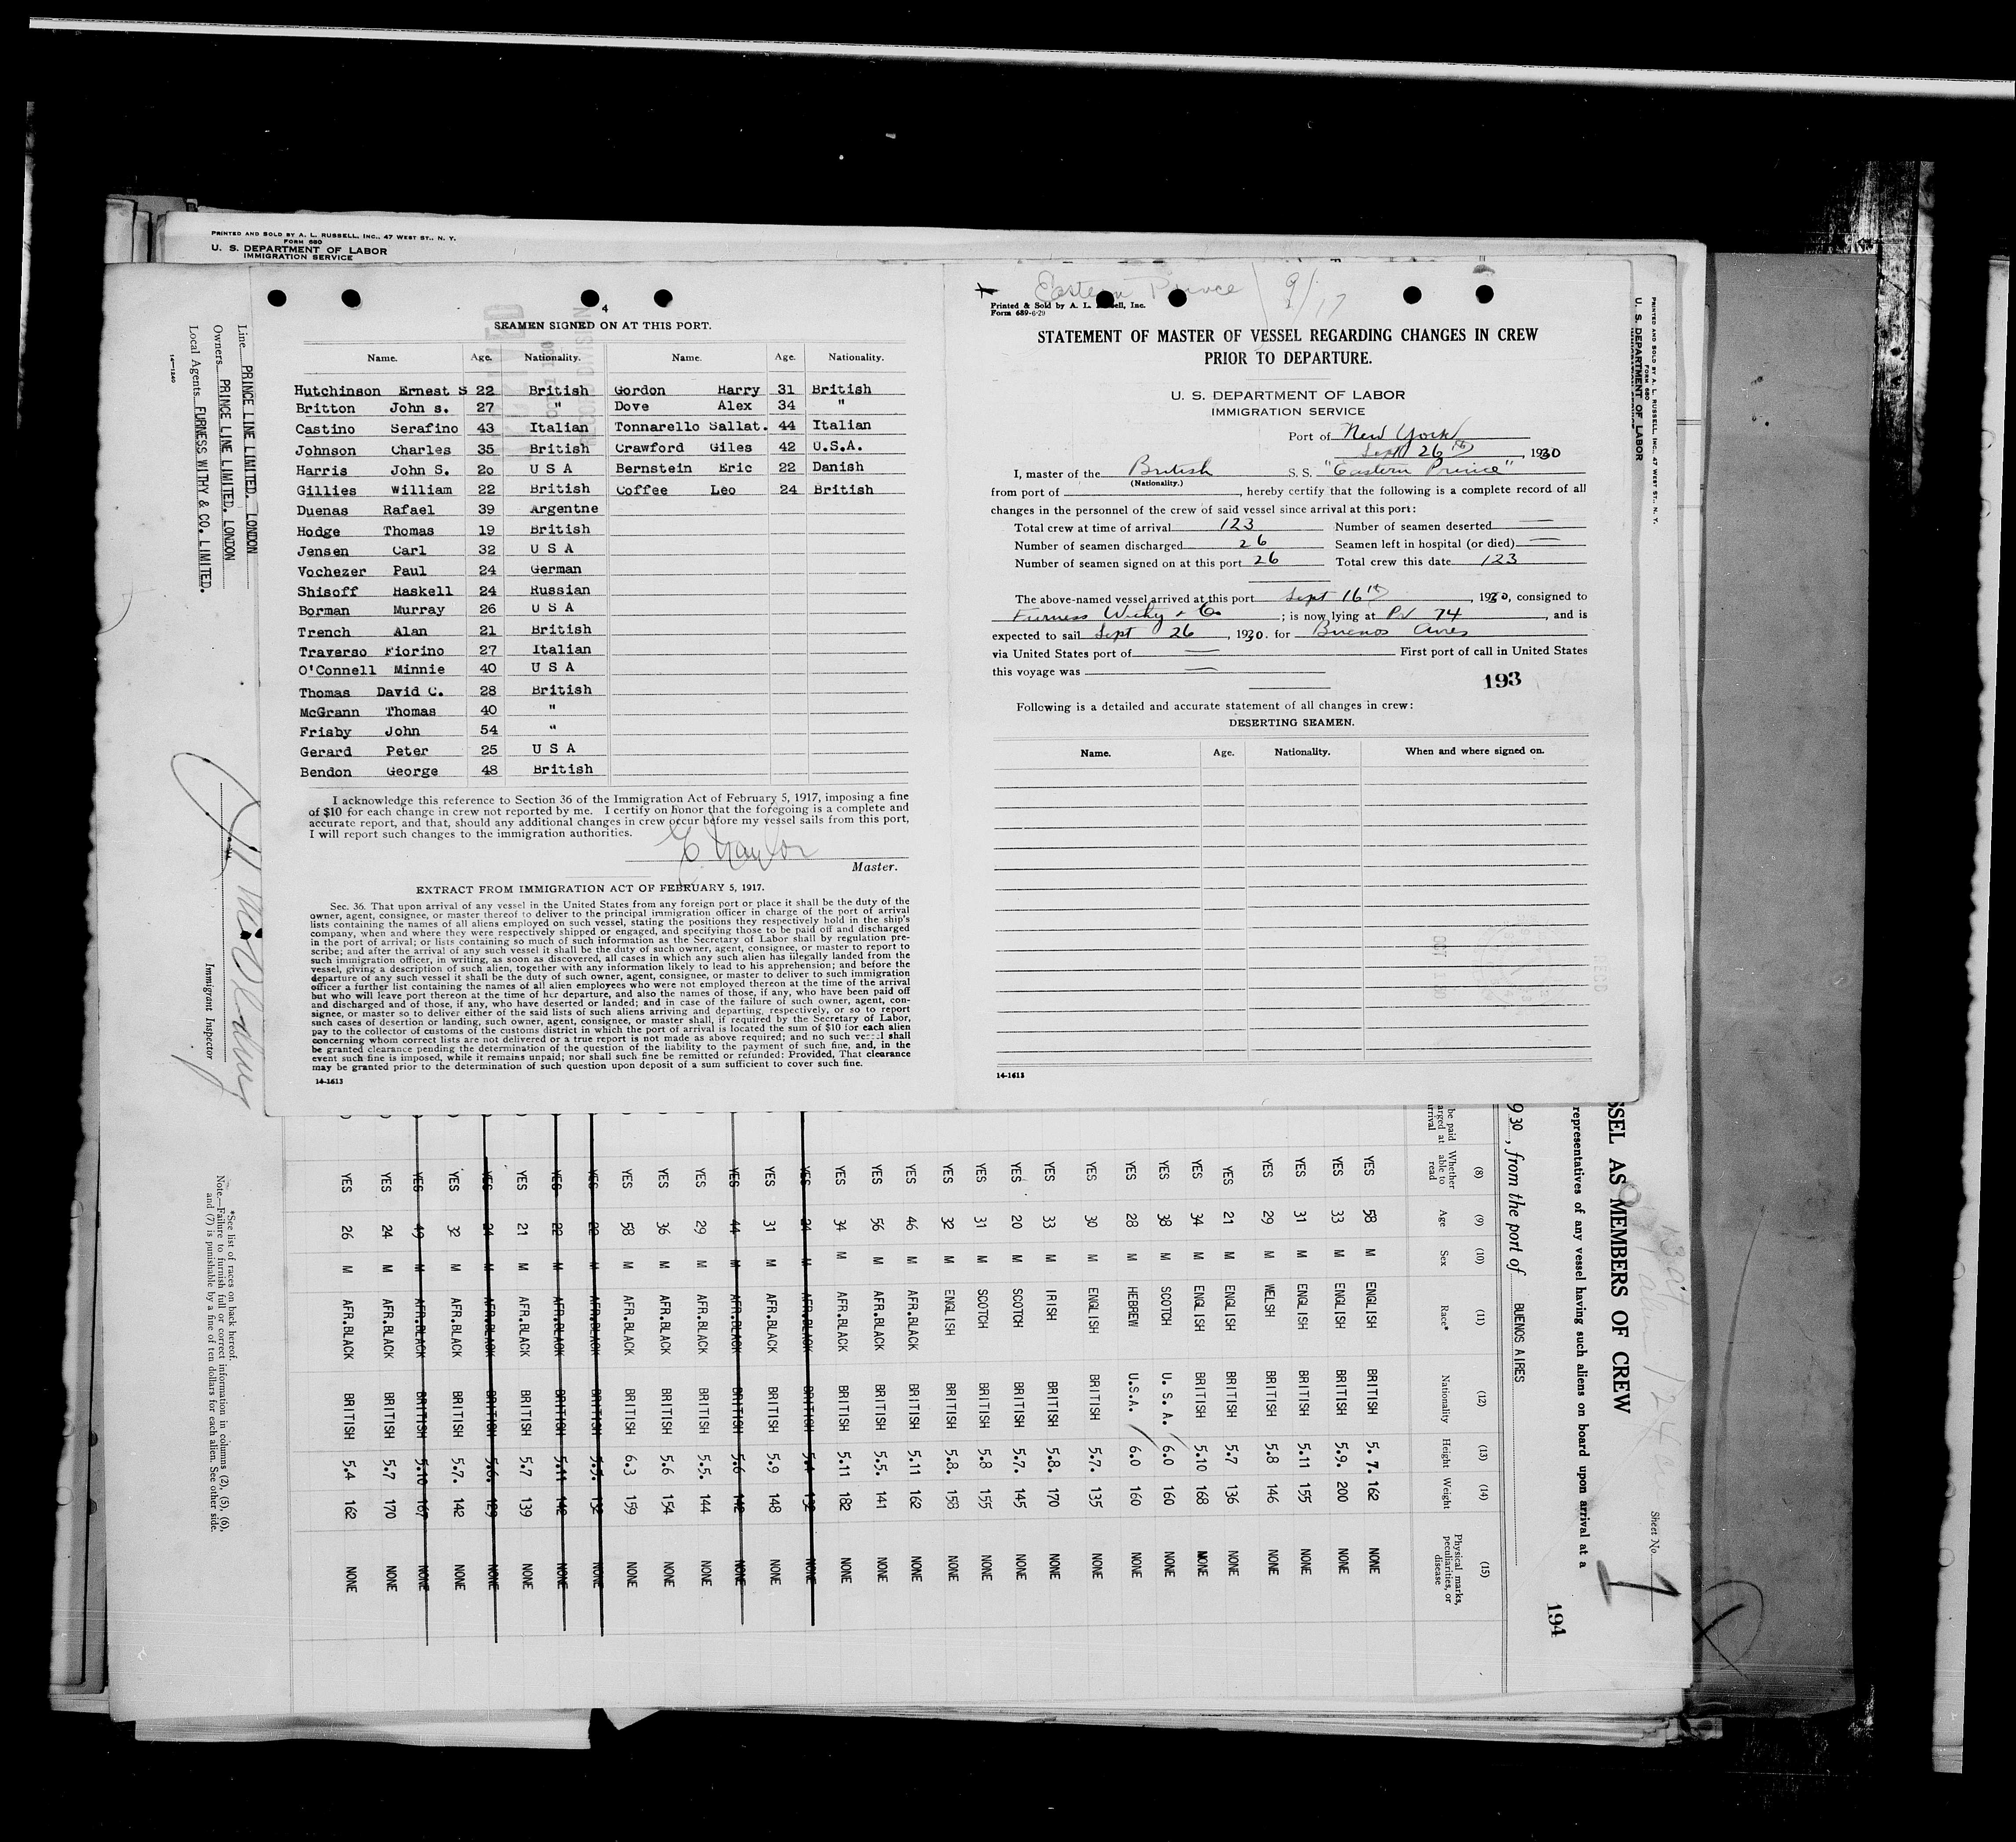 PRINTED AND SOLD BY A. L. RUSSELL, INC., 47 WEST ST., N. Y.
FORM 680
U. S. DEPARTMENT OF LABOR
IMMIGRATION SERVICE
Line PRINCE LINE LIMITED. LONDON
Owners PRINCE LINE LIMITED. LONDON
Local Agents FURNESS WITHY & CO. LIMITED.
14—1240
Immigrant Inspector
*See list of races on back hereof.
Note.—Failure to furnish full or correct information in columns (2), (5), (6),
and (7) is punishable by a fine of ten dollars for each alien. See other side.
4
SEAMEN SIGNED ON AT THIS PORT.
Name. Age. Nationality. Name. Age. Nationality.
Hutchinson Ernest S 22 British Gordon Harry 31 British
Britton John s. 27 " Dove Alex 34 "
Castino Serafino 43 Italian Tonnarello Sallat. 44 Italian
Johnson Charles 35 British Crawford Giles 42 U.S.A.
Harris John S. 2o U S A Bernstein Eric 22 Danish
Gillies William 22 British Coffee Leo 24 British
Duenas Rafael 39 Argentne
Hodge Thomas 19 British
Jensen Carl 32 U S A
Vochezer Paul 24 German
Shisoff Haskell 24 Russian
Borman Murray 26 U S A
Trench Alan 21 British
Traverso Fiorino 27 Italian
O'Connell Minnie 40 U S A
Thomas David C. 28 British
McGrann Thomas 40 "
Frisby John 54 "
Gerard Peter 25 U S A
Bendon George 48 British
I acknowledge this reference to Section 36 of the Immigration Act of February 5, 1917, imposing a fine
of $10 for each change in crew not reported by me. I certify on honor that the foregoing is a complete and
accurate report, and that, should any additional changes in crew occur before my vessel sails from this port,
I will report such changes to the immigration authorities.
Master.
EXTRACT FROM IMMIGRATION ACT OF FEBRUARY 5, 1917.
Sec. 36. That upon arrival of any vessel in the United States from any foreign port or place it shall be the duty of the
owner, agent, consignee, or master thereof to deliver to the principal immigration officer in charge of the port of arrival
lists containing the names of all aliens employed on such vessel, stating the positions they respectively hold in the ship's
company, when and where they were respectively shipped or engaged, and specifying those to be paid off and discharged
in the port of arrival; or lists containing so much of such information as the Secretary of Labor shall by regulation pre-
scribe; and after the arrival of any such vessel it shall be the duty of such owner, agent, consignee, or master to report to
such immigration officer, in writing, as soon as discovered, all cases in which any such alien has illegally landed from the
vessel, giving a description of such alien, together with any information likely to lead to his apprehension; and before the
departure of any such vessel it shall be the duty of such owner, agent, consignee, or master to deliver to such immigration
officer a further list containing the names of all alien employees who were not employed thereon at the time of the arrival
but who will leave port thereon at the time of her departure, and also the names of those, if any, who have been paid off
and discharged and of those, if any, who have deserted or landed; and in case of the failure of such owner, agent, con-
signee, or master so to deliver either of the said lists of such aliens arriving and departing, respectively, or so to report
such cases of desertion or landing, such owner, agent, consignee, or master shall, if required by the Secretary of Labor,
pay to the collector of customs of the customs district in which the port of arrival is located the sum of $10 for each alien
concerning whom correct lists are not delivered or a true report is not made as above required; and no such vessel shall
be granted clearance pending the determination of the question of the liability to the payment of such fine, and, in the
event such fine is imposed, while it remains unpaid; nor shall such fine be remitted or refunded: Provided, That clearance
may be granted prior to the determination of such question upon deposit of a sum sufficient to cover such fine.
14-1613
Eastern Prince 9/17
Printed & Sold by A. L. Russell, Inc.
Form 689-6-29
STATEMENT OF MASTER OF VESSEL REGARDING CHANGES IN CREW
PRIOR TO DEPARTURE.
U. S. DEPARTMENT OF LABOR
IMMIGRATION SERVICE
Port of New York
Sept 26th, 1930
I, master of the British S. S. "Eastern Prince"
(Nationality.)
from port of , hereby certify that the following is a complete record of all
changes in the personnel of the crew of said vessel since arrival at this port:
Total crew at time of arrival 123 Number of seamen deserted
Number of seamen discharged 26 Seamen left in hospital (or died)
Number of seamen signed on at this port 26 Total crew this date 123
The above-named vessel arrived at this port Sept 16th, 1930, consigned to
Furness Withy & Co ; is now lying at Pr 74, and is
expected to sail Sept 26, 1930. for Buenos Aires
via United States port of First port of call in United States
this voyage was
193
Following is a detailed and accurate statement of all changes in crew:
DESERTING SEAMEN.
Name. Age. Nationality. When and where signed on.
14-1613
PRINTED AND SOLD BY A. L. RUSSELL, INC., 47 WEST ST., N. Y.
FORM 680
U. S. DEPARTMENT OF LABOR
SSEL AS MEMBERS OF CREW
representatives of any vessel having such aliens on board upon arrival at a
930, from the port of BUENOS AIRES
Sheet No. 1
194
(8) (9) (10) (11) (12) (13) (14) (15)
Whether able to read Age Sex Race* Nationality Height Weight Physical marks, peculiarities, or disease
YES 58 M ENGLISH BRITISH 5.7. 162 NONE
YES 33 M ENGLISH BRITISH 5.9. 200 NONE
YES 31 M ENGLISH BRITISH 5.11 155 NONE
YES 29 M WELSH BRITISH 5.8 146 NONE
YES 21 M ENGLISH BRITISH 5.7 136 NONE
YES 34 M ENGLISH BRITISH 5.10 168 NONE
YES 38 M SCOTCH U. S. A. 6.0 160 NONE
YES 28 M HEBREW U.S.A. 6.0 160 NONE
YES 30 M ENGLISH BRITISH 5.7. 135 NONE
YES 33 M IRISH BRITISH 5.8. 170 NONE
YES 20 M SCOTCH BRITISH 5.7. 145 NONE
YES 31 M SCOTCH BRITISH 5.8 155 NONE
YES 32 M ENGLISH BRITISH 5.8. 153 NONE
YES 46 M AFR.BLACK BRITISH 5.11 162 NONE
YES 56 M AFR.BLACK BRITISH 5.5. 141 NONE
YES 34 M AFR.BLACK BRITISH 5.11 182 NONE
YES 24 M AFR.BLACK BRITISH 5.4 132 NONE
YES 31 M AFR.BLACK BRITISH 5.9 148 NONE
YES 44 M AFR.BLACK BRITISH 5.6 142 NONE
YES 29 M AFR.BLACK BRITISH 5.5. 144 NONE
YES 36 M AFR.BLACK BRITISH 5.6 154 NONE
YES 58 M AFR.BLACK BRITISH 6.3 159 NONE
YES 22 M AFR.BLACK BRITISH 5.5. 132 NONE
YES 22 M AFR.BLACK BRITISH 5.11 142 NONE
YES 21 M AFR.BLACK BRITISH 5.7 139 NONE
YES 24 M AFR.BLACK BRITISH 5.6. 129 NONE
YES 32 M AFR.BLACK BRITISH 5.7. 142 NONE
YES 49 M AFR.BLACK BRITISH 5.10 167 NONE
YES 24 M AFR.BLACK BRITISH 5.7 170 NONE
YES 26 M AFR.BLACK BRITISH 5.4 162 NONE